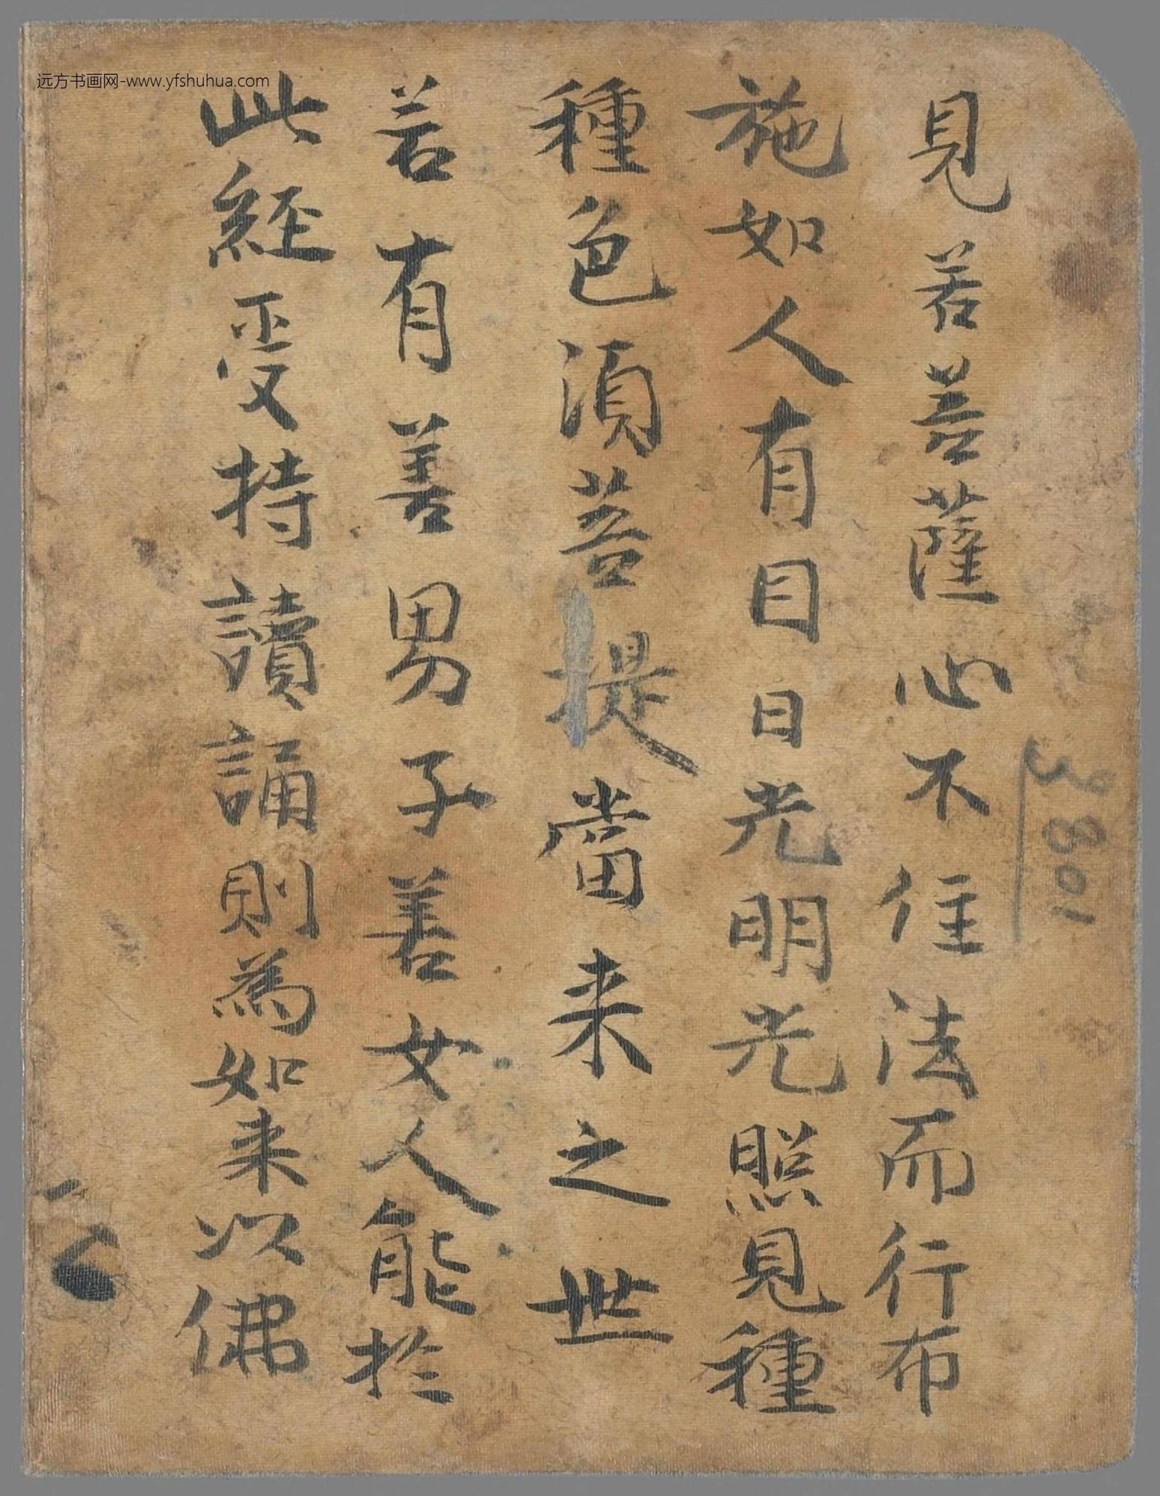 远方书画网-www.yfshuhua.com
見若菩薩心不住法而行布
施如人有目日光明光照見種
種色須菩提當来之世
若有善男子善女人能於
此經受持讀誦則為如来以佛